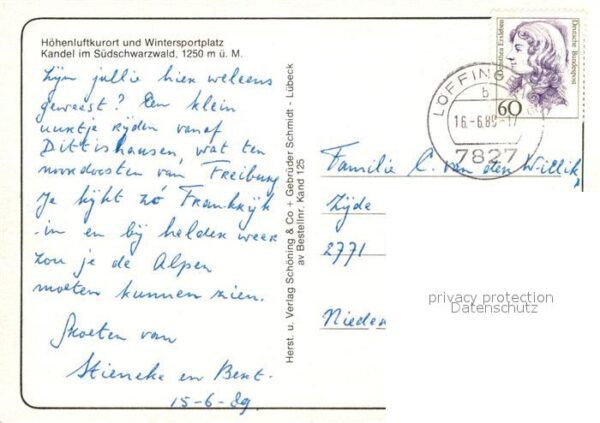 Höhenluftkurort und Wintersportplatz
Kandel im Südschwarzwald, 1250 m ü. M.
Zijn jullie hier weleens
geweest? Een klein
uurtje rijden vanaf
Dittishausen, wat ten
noordoosten van Freiburg
Je kijkt zó Frankrijk
in en bij helder weer
zou je de Alpen
moeten kunnen zien.
Groeten van
Stieneke en Bert.
15-6-89
Herst. u. Verlag Schöning & Co + Gebrüder Schmidt - Lübeck
av Bestellnr. Kand 125
Dorothea Erxleben
Deutsche Bundespost
60
LÖFFINGE
b
16.-6.89-17
7827
Familie C. van den Willik
Zijde
2771
Nieder
privacy protection
Datenschutz